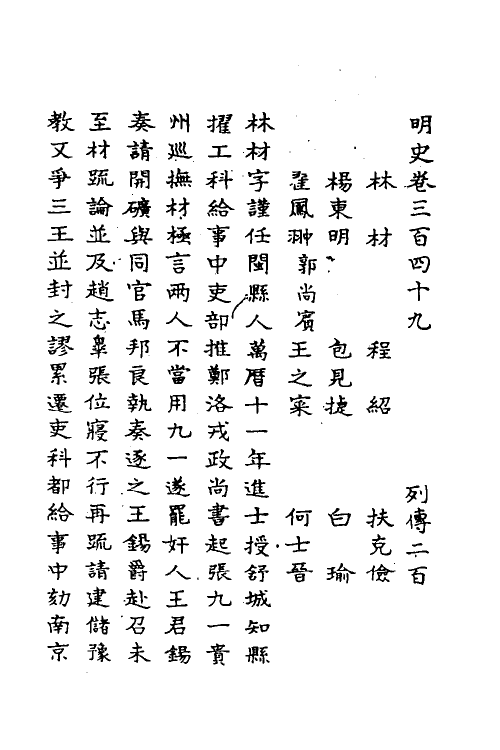 明史卷三百四十九　列傳二百
林材　程紹　扶克儉
楊東明　包見捷　白瑜
翟鳳翀郭尚賓王之寀　何士晉
林材字謹任閩縣人萬曆十一年進士授舒城知縣
擢工科給事中吏部推鄭洛戎政尚書起張九一貴
州巡撫材極言兩人不當用九一遂罷奸人王君錫
奏請開礦與同官馬邦良執奏逐之王錫爵赴召未
至材疏論並及趙志皋張位寢不行再疏請建儲豫
教又爭三王並封之謬累遷吏科都給事中劾南京